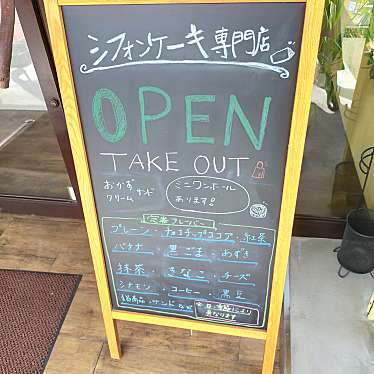 シフォンケーキ専門店
OPEN
TAKE OUT
おかずサンド
クリーム
ミニワンホール
あります!
定番フレーバー
プレーン・チョコチップココア・紅茶
バナナ・黒ごま・あずき
抹茶・きなこ・チーズ
シナモン・コーヒー・黒豆
サンド
異なります